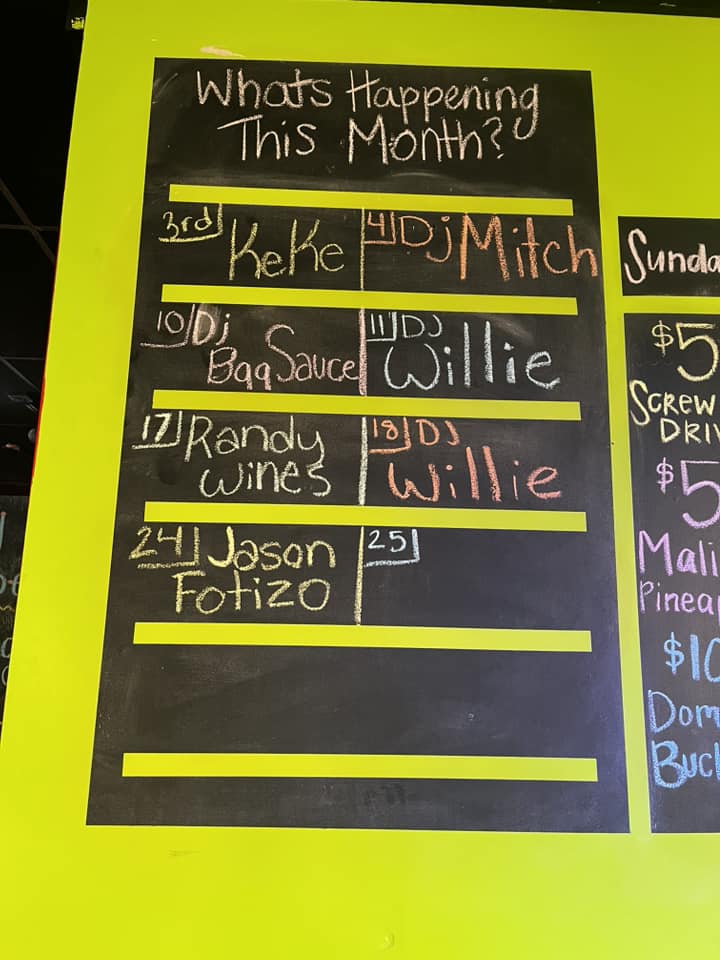 Whats Happening
This Month?
3rd KeKe
4 Dj Mitch
10 Dj
BqqSauce
11 DJ
Willie
17 Randy
Wines
18 DJ
Willie
24 Jason
Fotizo
25
Sunda
$5
SCREW
DRIV
$5
Mali
Pineap
$10
Dom
Buck